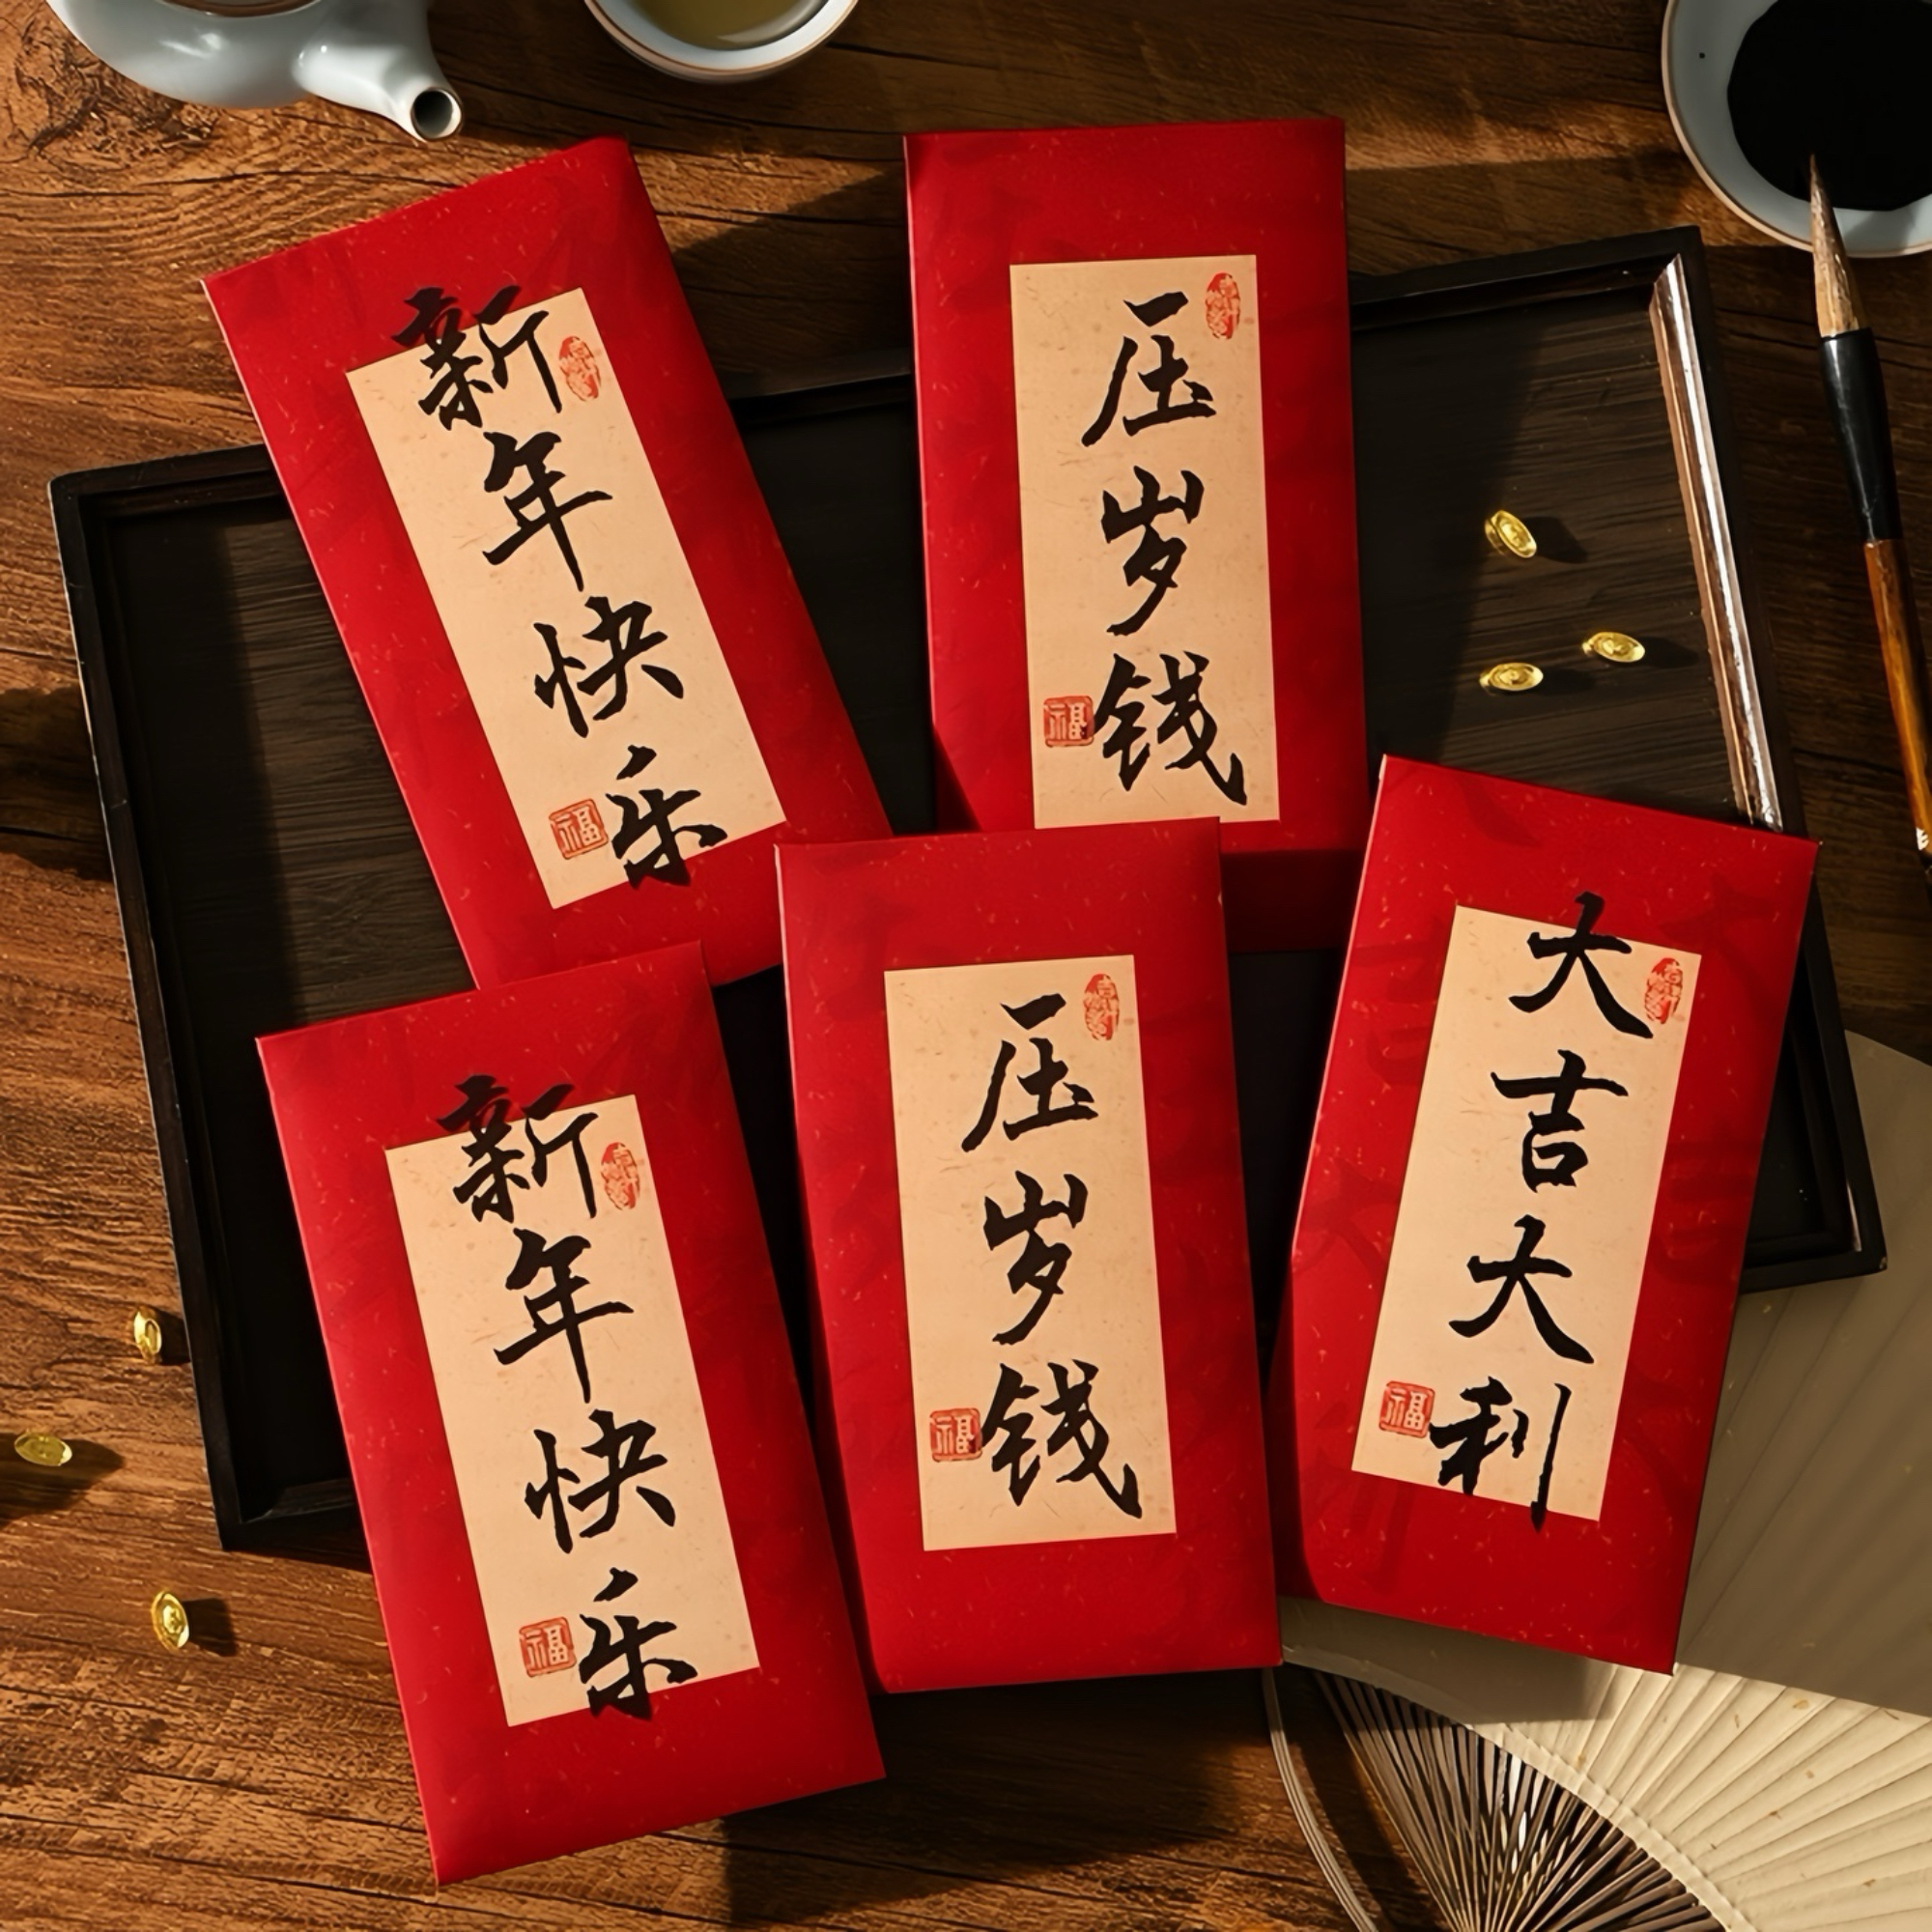 新年快乐
福
压岁钱
福
新年快乐
福
压岁钱
福
大吉大利
福